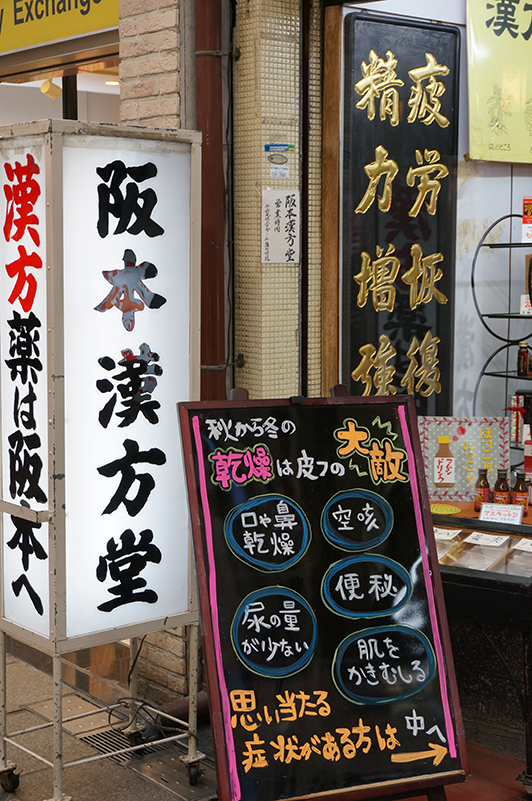 Exchange
漢方薬は阪本へ
阪本漢方堂
阪本漢方堂
営業時間
疲労恢復
精力増強
漢方
秋から冬の
乾燥は皮フの大敵
口や鼻
乾燥
空咳
便秘
尿の量
が少ない
肌を
かきむしる
思い当たる
症状がある方は
中へ